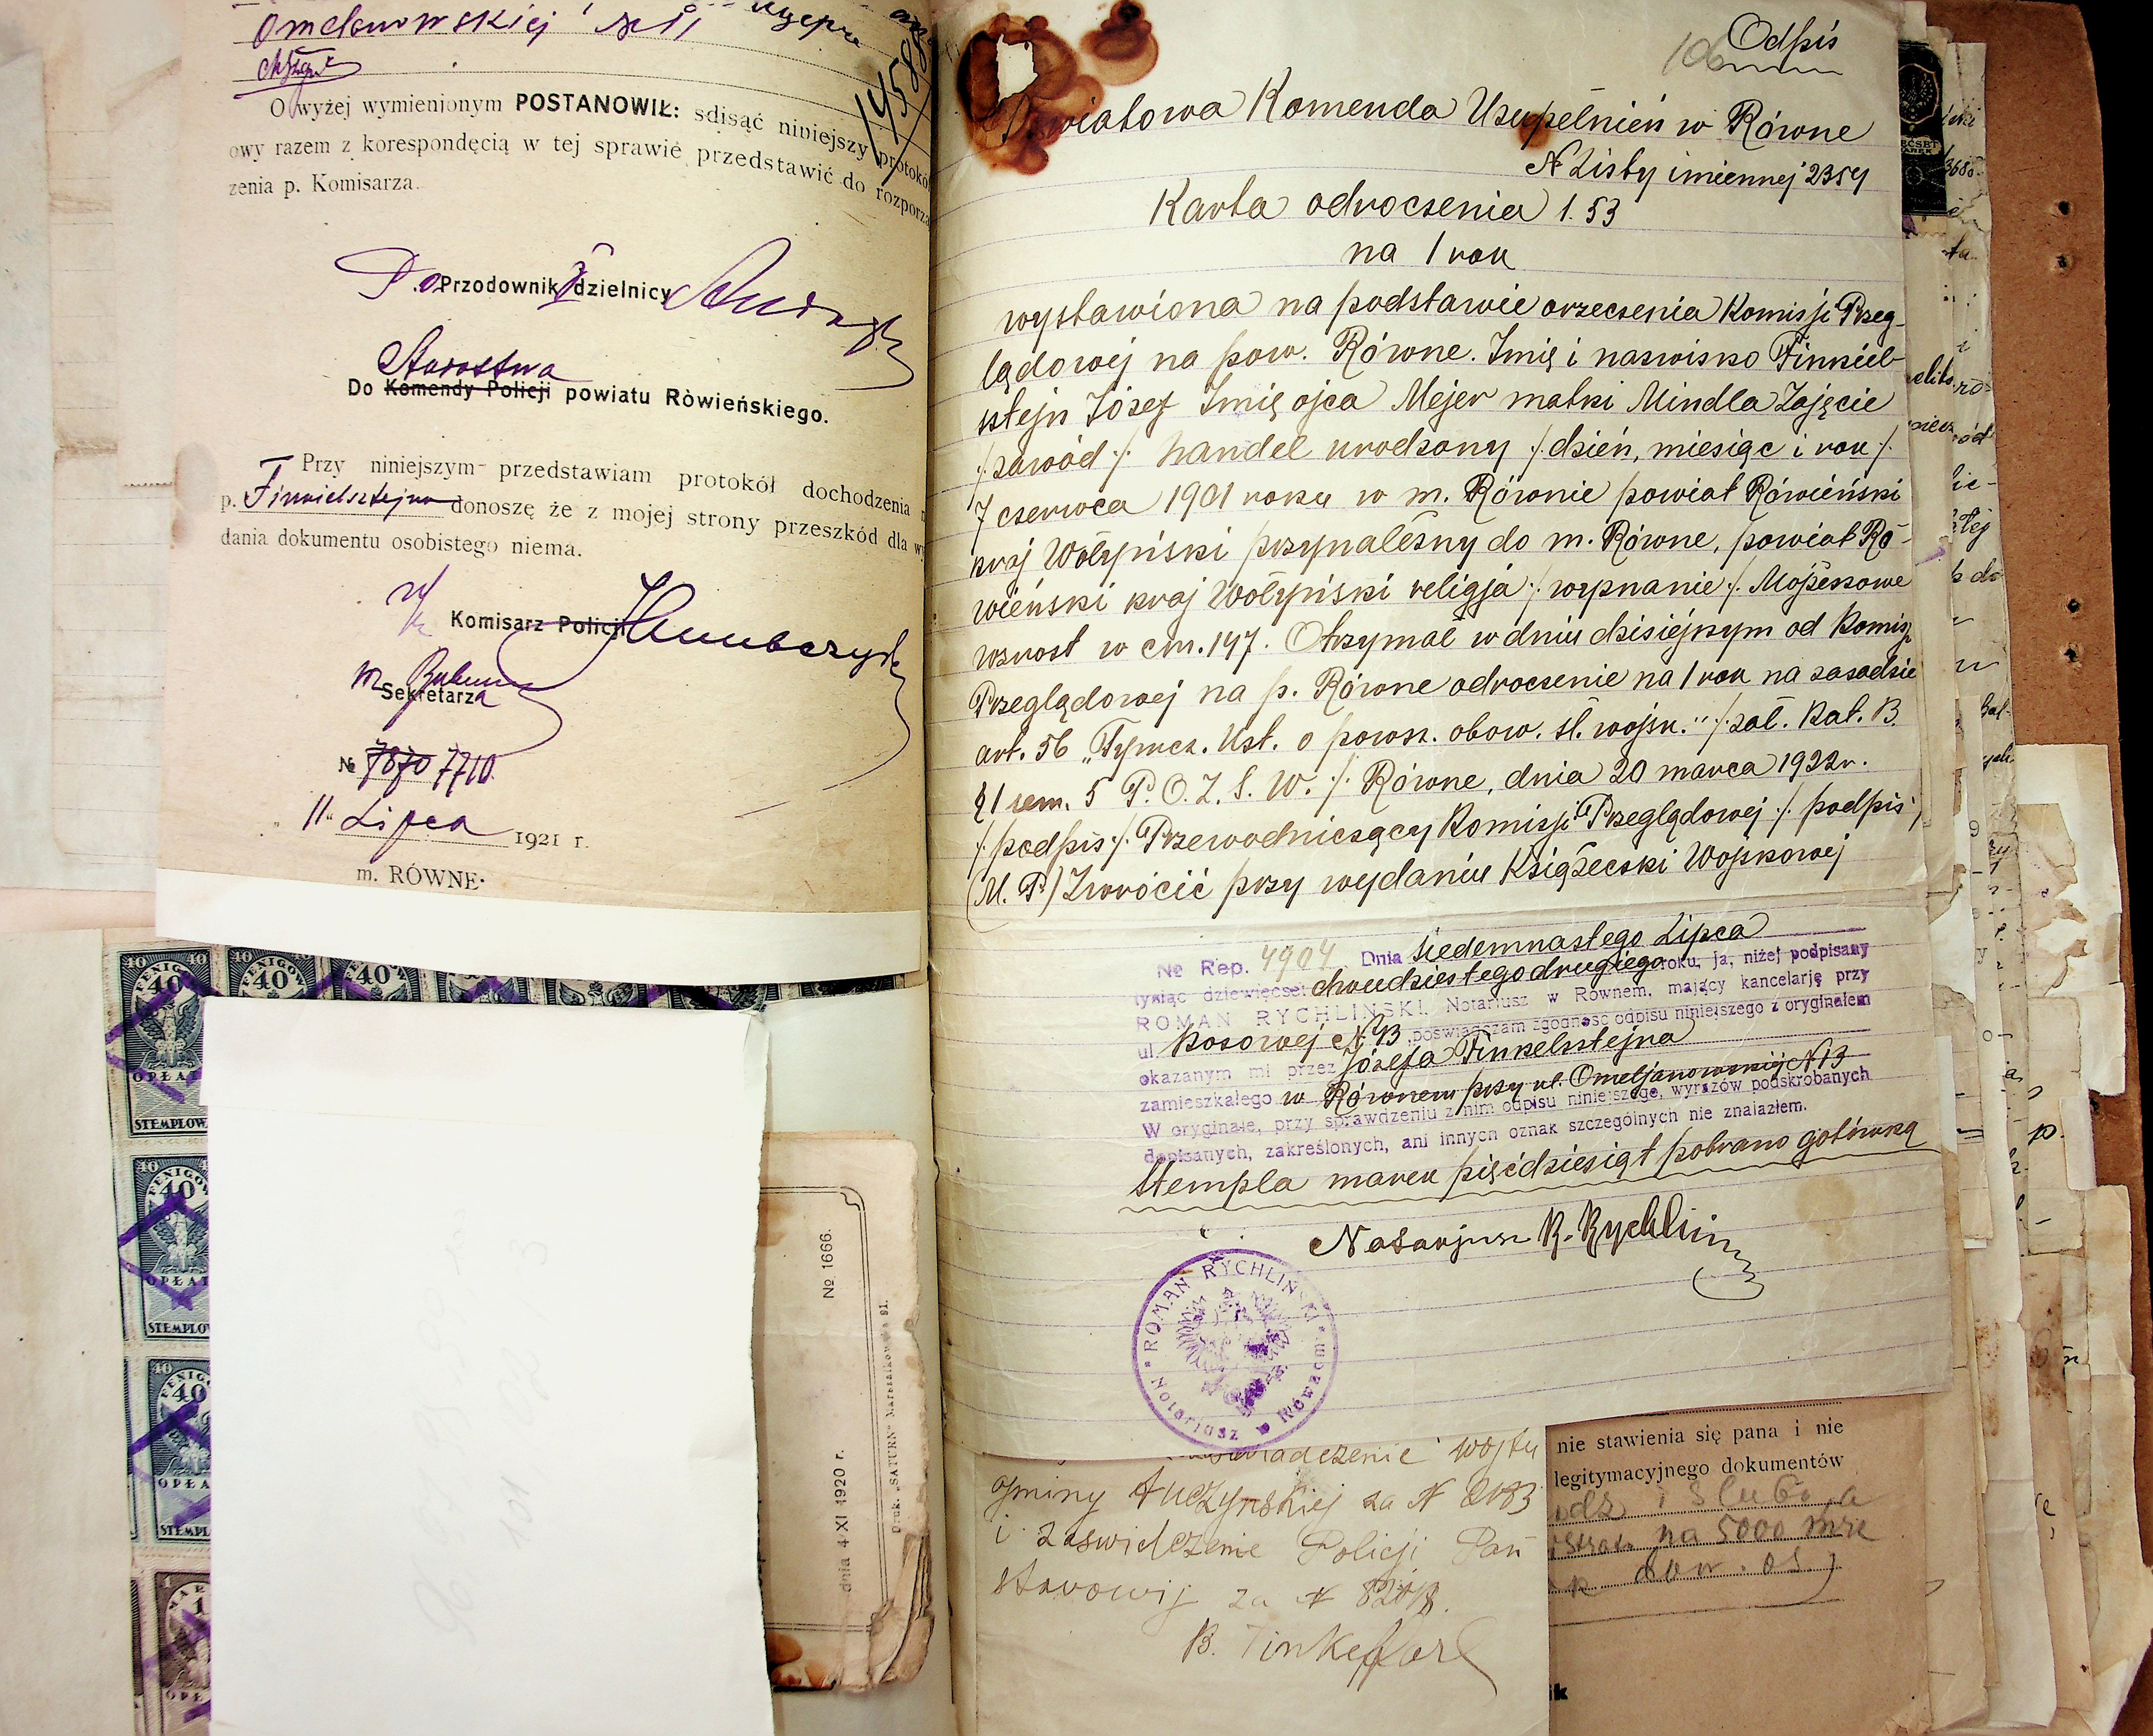 Omelanowskiej
O wyżej wymienionym POSTANOWIŁ: sdisąć niniejszy protokó
owy razem z korespondęcią w tej sprawie przedstawić do rozporzą
zenia p. Komisarza.
14588
D.o. Przodownik dzielnicy
Starostwa
Do Komendy Policji powiatu Ròwieńskiego.
Przy niniejszym przedstawiam protokół dochodzenia
p. Finkielsztejna donoszę że z mojej strony przeszkód dla wy
dania dokumentu osobistego niema.
Komisarz Policji
Sekretarza
№ 7870 7710
"11" Lipca 1921 r.
m. RÓWNE.
40 FENIGÓW 40
OPŁAT
STEMPLOW
№ 1666.
dnia 4 XI 1920 r.
Druk. „SATURN" Marszałkowska 91.
Odpis
106
Powiatowa Komenda Uzupełnień w Równe
N Listy imiennej 2354
Karta odroczenia l. 53
na 1 rok
wystawiona na podstawie orzeczenia Komisji Przeg-
lądowej na pow. Równe. Imię i nazwisko Finkiel-
sztejn Józef Imię ojca Mejer matki Mindla Zajęcie
/.zawód./. handel urodzony /.dzień, miesiąc i rok/.
7 czerwca 1901 roku w m. Równie powiat Rówieński
kraj Wołyński przynależny do m. Równe, powiat Ró-
wieński kraj Wołyński religja /.wyznanie/. Mojżeszowe
wzrost w cm. 147. Otrzymał w dniu dzisiejszym od Komisji
Przeglądowej na p. Równe odroczenie na 1 rok na zasadzie
art. 56 „Tymcz. Ust. o powsz. obow. sł. wojsk." /.zał. Kat. B.
§ 1 zem. 5 P. O. Z. S. W./. Równe, dnia 20 marca 1922 r.
/.podpis./. Przewodniczący Komisji Przeglądowej /.podpis/
(M. P.) Zwrócić przy wydaniu Książeczki Wojskowej
№ Rep. 4904 Dnia siedemnastego Lipca
tysiąc dziewięćset dwudziestego drugiego roku, ja, niżej podpisany
ROMAN RYCHLIŃSKI, Notariusz w Równem, mający kancelarję przy
ul. Kosowej N 13 poświadczam zgodność odpisu niniejszego z oryginałem
okazanym mi przez Józefa Finkelsztejna
zamieszkałego w Równem przy ul. Omeljanowskiej N 13
W oryginale, przy sprawdzeniu z nim odpisu niniejszego, wyrazów podskrobanych
dopisanych, zakreślonych, ani innych oznak szczególnych nie znalazłem.
Stempla marek pięćdziesiąt pobrano gotówką
Notarjusz R. Rychliński
ROMAN RYCHLIŃSKI
Notarjusz w Równem
wójty
gminy Tuczyńskiej za N 2183
i zaswidczenie Policji Pań
stwowij za N
B. Finkelsz
nie stawienia się pana i nie
legitymacyjnego dokumentów
i ślubo, a
na 5000 mrk
dow. os.)